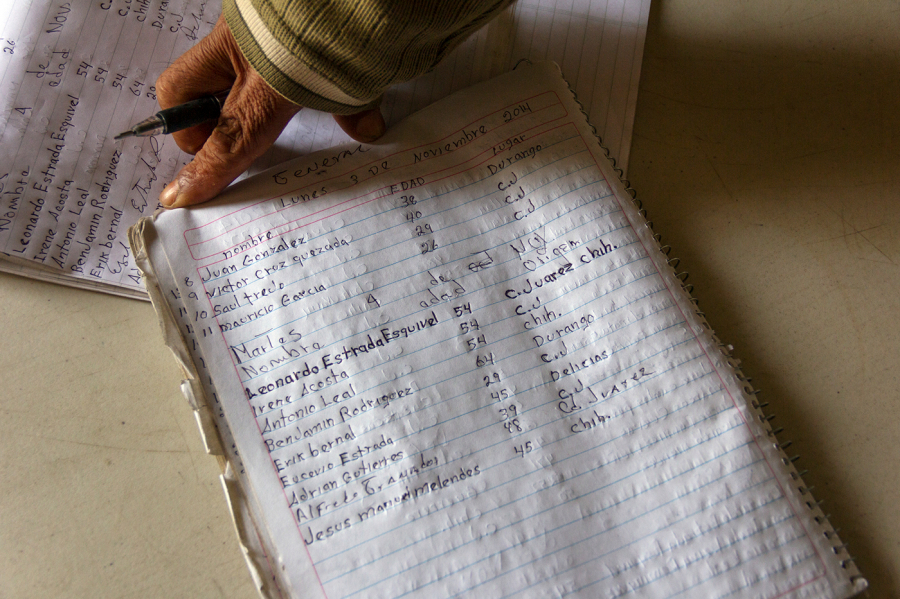 General
Lunes 3 De Noviembre 2014
nombre EDAD Lugar
8 Juan Gonzalez 38 Durango
9 Victor Cruz quezada 40 C.J
10 Saul tredo 29 C.J
11 mauricio Garcia 26 C.J
Martes 4 de Nov
Nombra edad Origem
Leonardo Estrada Esquivel 54 C. Juarez chih.
Irene Acosta 54 C.J
Antonio Leal 54 chih.
Benjamin Rodriguez 64 Durango
Erik bernal 29 C.J
Eucevio Estrada 45 Delicias
Adrian Gutierres 39 C.J
Alfredo 48 Cd. Juarez
Jesus manuel Melendes 45 chih.
26
4 de Nov
Nombra edad
Leonardo Estrada Esquivel 54
Irene Acosta 54
Antonio Leal 54
Benjamin Rodriguez 64
Erik bernal 29